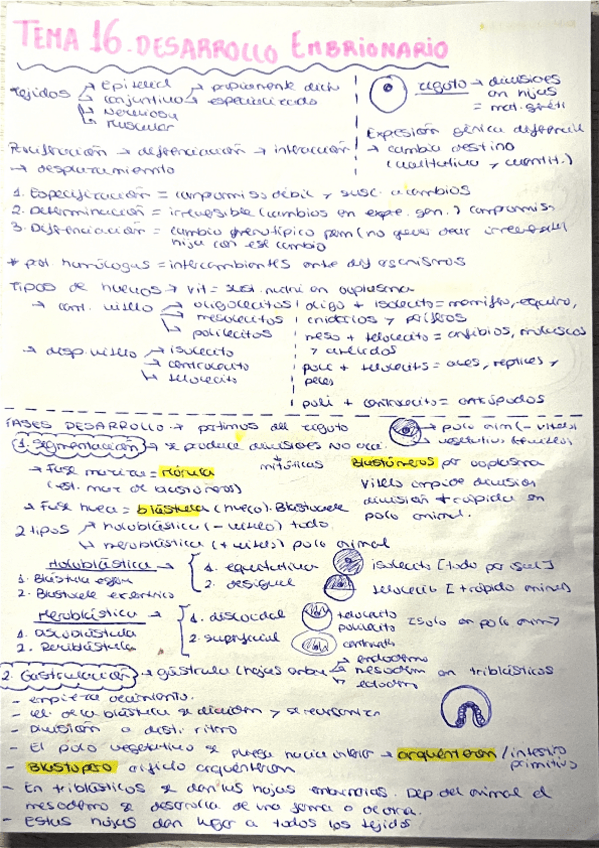 TEMA 16. DESARROLLO EMBRIONARIO
Tejidos → epitelial → propiamente dich
→ conjuntivo → especializado
→ nervioso
→ muscular
cigoto → divisiones
en hijas
= mat. genéti
Expresión génica diferencia
→ cambia destino
(cualitativo y cuantit.)
→ diferenciación → interacción
→ desplazamiento
1. Especificación = compromiso débil y susc. a cambios
2. Determinación = irreversible (cambios en expr. gen.) compromiso
3. Diferenciación = cambio fenotípico
hija con ese cambio
* homólogas = intercambiables entre dif organismos
Tipos de huevos → vit = sust. nutri en ooplasma
→ cant. vitelo → oligolecitos
→ mesolecitos
→ polilecitos
→ disp. vitelo → isolecito
→ centrolecito
→ telolecito
oligo + isolecito = mamífero, equino,
cnidarios y poríferos
meso + telolecito = anfibios, moluscos
y anélidos
poli + telolecito = aves, reptiles y
peces
poli + centrolecito = artrópodos
FASES DESARROLLO → partimos del cigoto
→ polo anim (- vitelo)
→ vegetativo (+ vitelo)
1. Segmentación → se produce divisiones NO crec.
mitóticas
→ Fase maciza = mórula
(est. mac de blastómeros)
Blastómeros por ooplasma
Vitelo impide división
división + rápida en
polo animal.
→ Fase hueca = blástula (hueco). Blastocele
2 tipos → holoblástica (- vitelo) todo.
→ meroblástica (+ vitelo) polo animal
Holoblástica →
1. Blástula
2. Blastocele excéntrico
1. equitativa
2. desigual
isolecito [todo por igual]
telolecito [+ rápido animal]
Meroblástica →
1. discoblástula
2. Periblástula
1. discoidal
2. superficial
telolecito
polilecito
[solo en polo anim]
centrolecito
2. Gastrulación → gástrula (hojas embr → endodermo
→ mesodermo en triblásticos
→ ectoderm
- empieza crecimiento.
- cél. de la blástula se dividen y se reorganiza
- División a disti. ritmo
- El polo vegetativo se pliega hacia interior → arquénteron / intestino
primitivo
- Blastoporo orificio arquénteron
- En triblásticos se dan las hojas embrionarias. Dep. del animal el
mesodermo se desarrolla de una forma o de otra.
- Estas hojas dan lugar a todos los tejidos